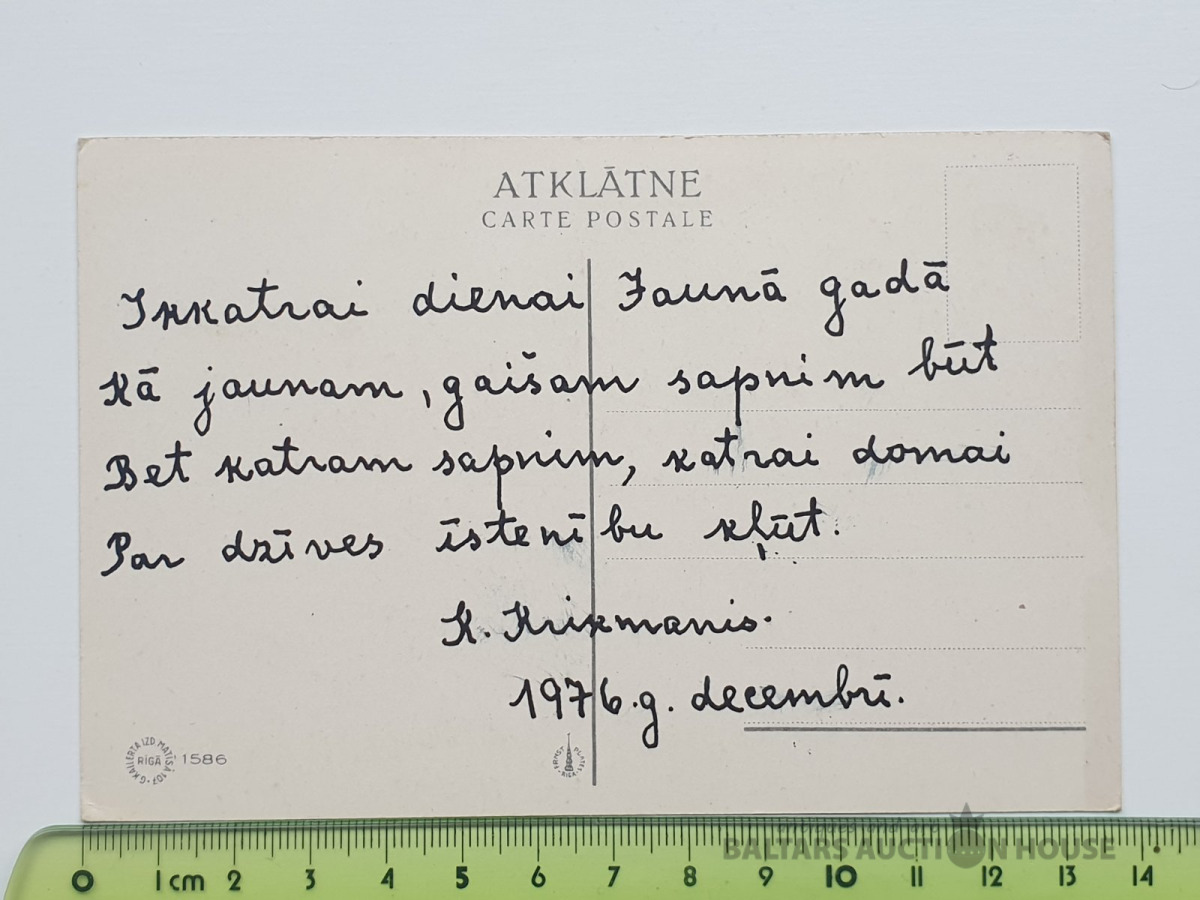 ATKLĀTNE
CARTE POSTALE
Ikkatrai dienai Jaunā gadā
Kā jaunam, gaišam sapnim būt
Bet katram sapnim, katrai domai
Par dzīves īstenību kļūt.
K. Krikmanis.
1976.g. decembrī.
G. KALLERTA IZD. MATĪSA 107
RĪGĀ
1586
ERNST PLATES RĪGĀ
0 1 cm 2 3 4 5 6 7 8 9 10 11 12 13 14
antiques and art
BALTARS AUCTION HOUSE